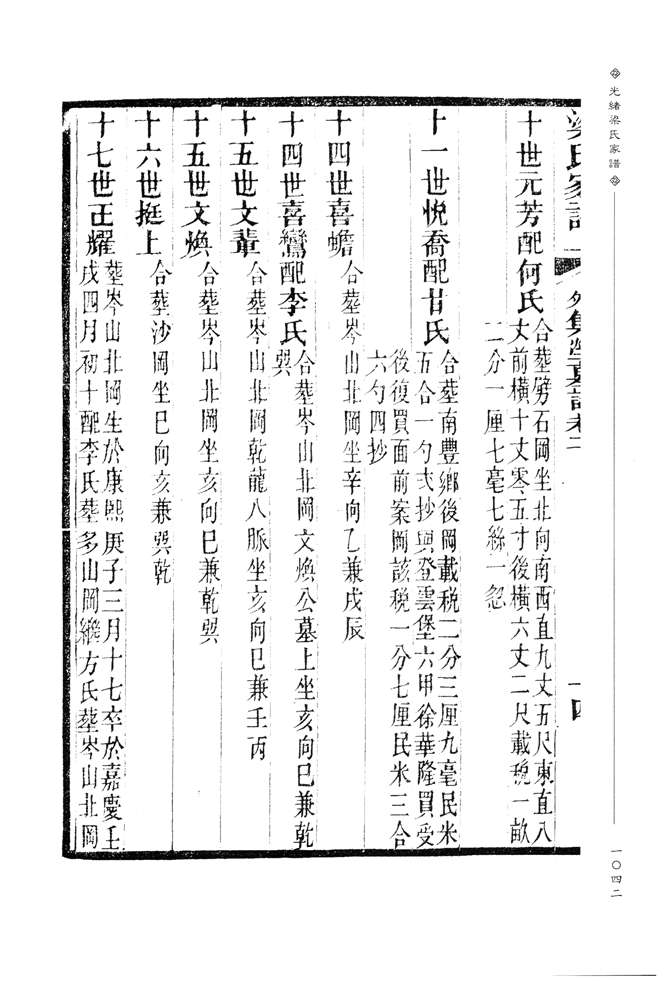 光緒梁氏家譜
一〇四二
梁氏家譜 外集塋墓譜卷二 十四
十世元芳配何氏
合塟劈石岡坐北向南西直九丈五尺東直八
丈前橫十丈零五寸後橫六丈二尺載稅一畝
二分一厘七毫七絲一忽
十一世悅喬配甘氏
合塟南豐鄉後岡載稅二分三厘九毫民米
五合一勺弍抄與登雲堡六甲徐華隆買受
後復買面前案岡該稅一分七厘民米三合
六勺四抄
十四世喜蟾
合塟岑山北岡坐辛向乙兼戌辰
十四世喜鸞配李氏
合塟岑山北岡文煥公墓上坐亥向巳兼乾
巽
十五世文輩
合塟岑山北岡乾龍八脈坐亥向巳兼壬丙
十五世文煥
合塟岑山北岡坐亥向巳兼乾巽
十六世挺上
合塟沙岡坐巳向亥兼巽乾
十七世正耀
塟岑山北岡生於康熙庚子三月十七卒於嘉慶壬
戌四月初十配李氏塟多山岡繼方氏塟岑山北岡